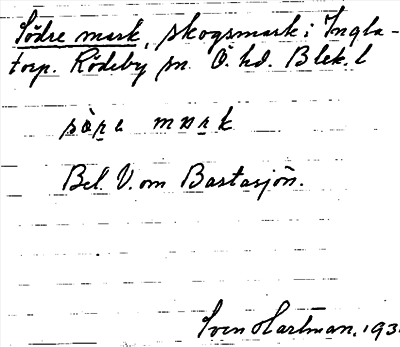 Södre mark, skogsmark i Ingla-
torp. Rödeby sn. Ö. hd. Blek. l
mark
Bel. V. om Bastasjön.
Sven Hartman, 193